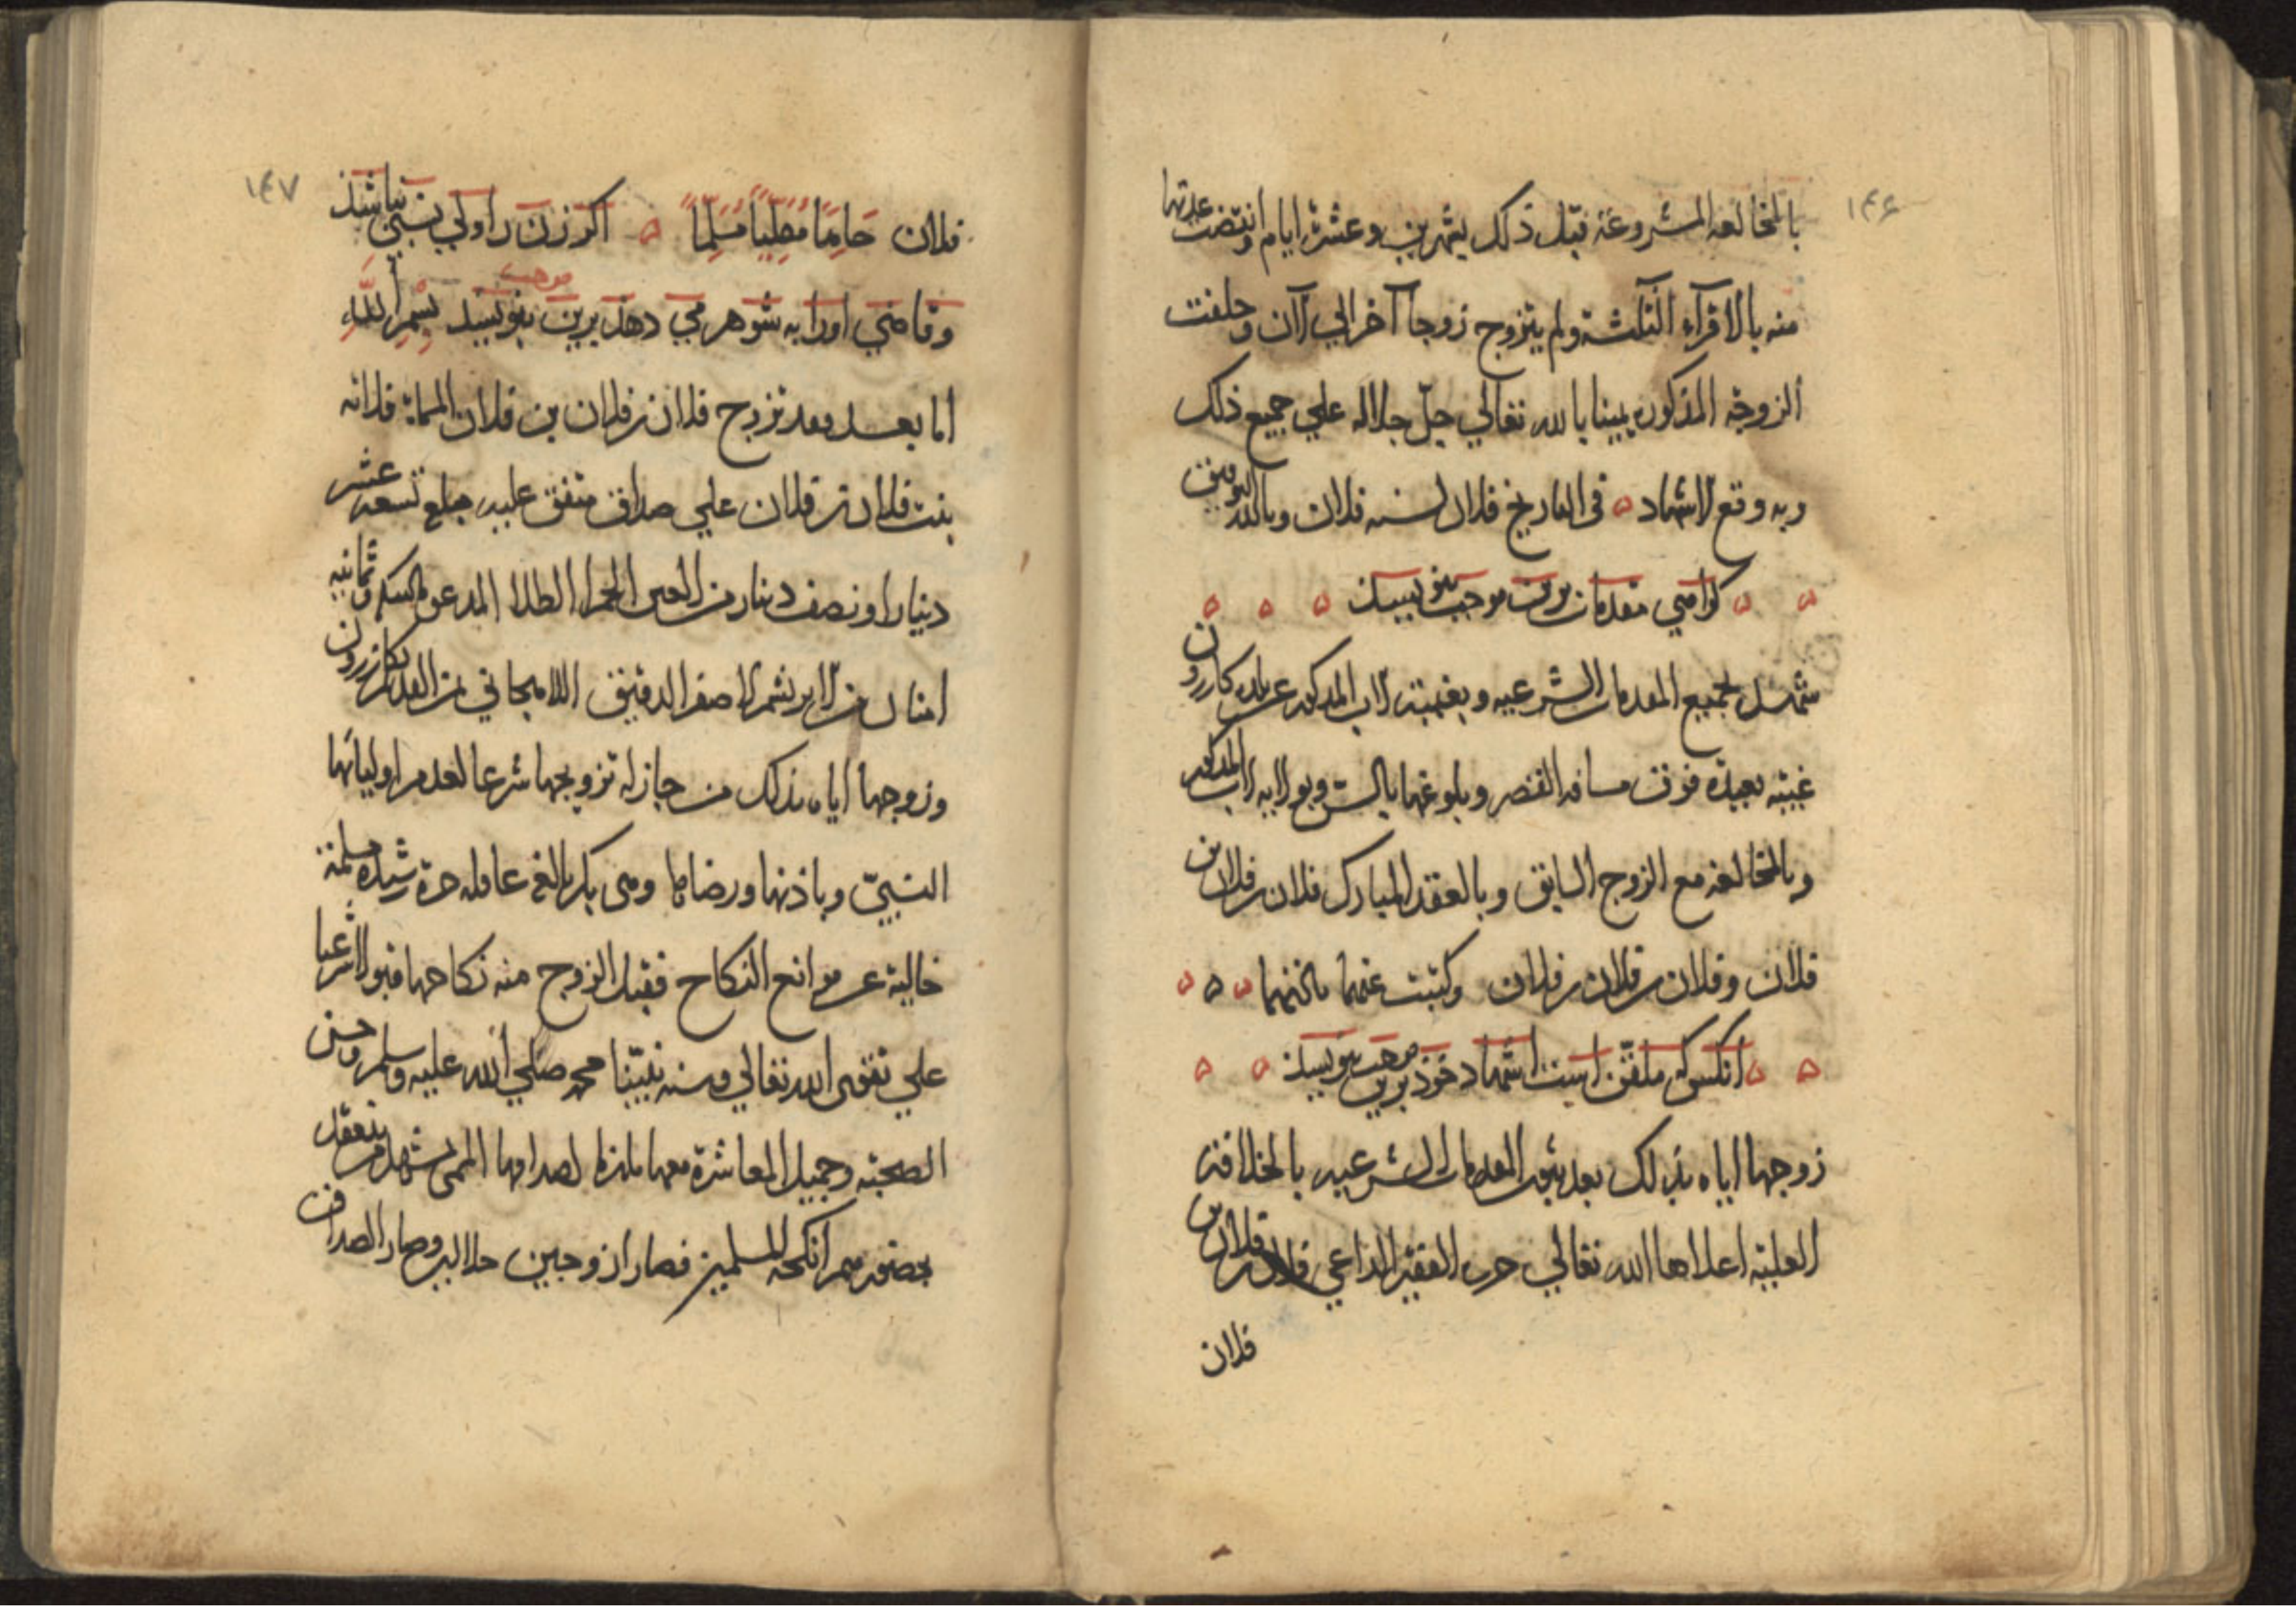 ۱۴۶
بالمخالعه المشروعة قبل ذلك بشهرين وعشرة ايام وانقضت عدتها
منه بالاقرآء الثلثة ولم يتزوج زوجا آخر الي الآن وحلفت
الزوجة المذكوره يمينا بالله تعالي جلّ جلاله علي جميع ذلك
وبه وقع الاشهاد في التاريخ فلان لسنه فلان وبالله التوفيق
كواهي مقدمات برين موجب بنويسند
شهد بجميع المقدمات الشرعيه وبغيبة الاب المذكور عن بلده كازرون
غيبة بعيدة فوق مسافه القصر وبلوغها بالسن وبولايه الاب المذكور
وبالمخالعه مع الزوج السابق وبالعقد المبارك فلان بن فلان بن
فلان وفلان بن فلان بن فلان وكتبت عنهما باذنهما
انكس كه ملقن است اشهاد خوذ برين موجب بنويسد
زوجها اياه بذلك بعد ثبوت المقدمات الشرعيه بالخلافة
العلية اعلاها الله تعالي حرره الفقير الداعي فلان بن فلان بن
فلان
۱۴۷
فلان حَامِدًا مُصَلِّيًا مُسَلِّمًا اكر زن را ولي نسبي نباشذ
وقاضي اورا به شوهر مي دهذ برين موجب بنويسند بِسْمِ اللَّهِ
اما بعد فقد تزوج فلان بن فلان بن فلان المسماة فلانه
بنت فلان بن فلان علي صداق متفق عليه مبلغ تسعه عشر
دينارا ونصف دينار من العين الحمرا الطلا المدعو بالسكه وثمانيه
امنان من الابريشم الاصفر الدقيق اللاهجاني بوزن العدل بكازرون
وزوجها اياه بذلك من جاز له تزويجها شرعا لعدم اوليائها
النسبيّ وباذنها ورضاها وهي بكر بالغة عاقله حرة رشيده مسلمة
خالية عن موانع النكاح فقبل الزوج منه نكاحها قبولا شرعيا
علي تقوى الله تعالي وسنه نبيّنا محمد صلي الله عليه وسلم وحسن
الصحبة وجميل المعاشرة معها ملتزما لصداقها المسمى بمشهد من ينعقد
بحضورهم انكحة المسلمين فصارا زوجين حلالين وصار الصداق